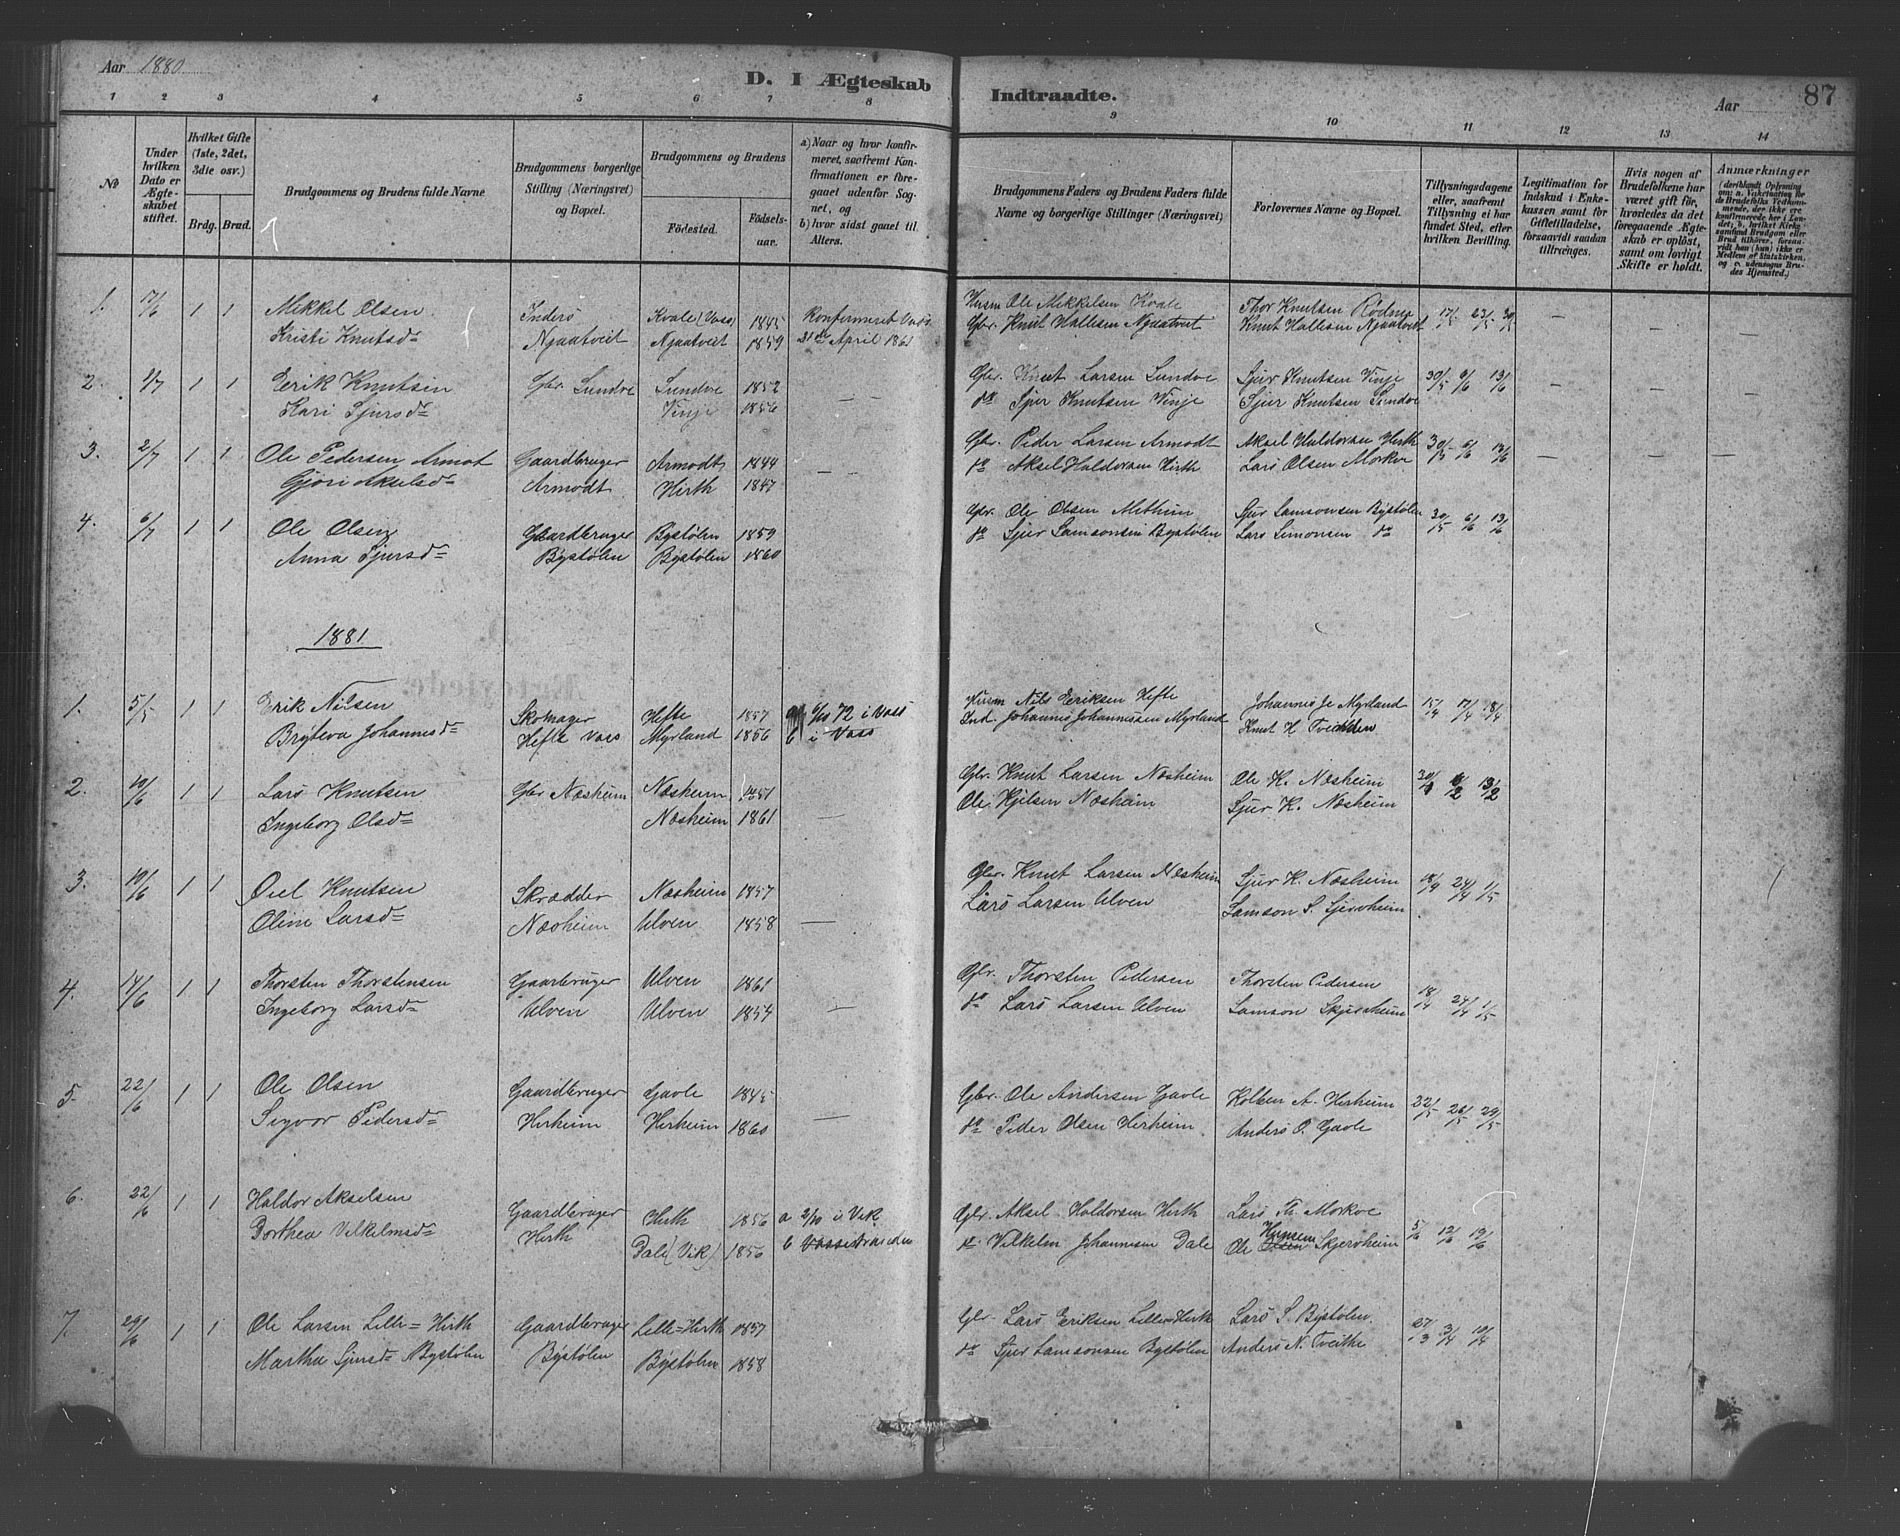 Aar 1880
D. I Ægteskab Indtraadte.
Aar 87
1 2 3 4 5 6 7 8 9 10 11 12 13 14
№
Under hvilken Dato er Ægteskabet stiftet.
Hvilket Gifte (1ste, 2det, 3die osv.)
Brdg. Brud.
Brudgommens og Brudens fulde Navne
Brudgommens borgerlige Stilling (Næringsvei) og Bopæl.
Brudgommens og Brudens
Fødested.
Fødselsaar.
a) Naar og hvor konfirmeret, saafremt Konfirmationen er foregaaet udenfor Sognet, og
b) hvor sidst gaaet til Alters.
Brudgommens Faders og Brudens Faders fulde Navne og borgerlige Stillinger (Næringsvei)
Forlovernes Navne og Bopæl.
Tillysningsdagene eller, saafremt Tillysning ei har fundet Sted, efter hvilken Bevilling.
Legitimation for Indskud i Enkekassen samt for Giftetilladelse, forsaavidt saadan tiltrænges.
Hvis nogen af Brudefolkene har været gift før, hvorledes da det foregaaende Ægteskab er opløst, samt om lovligt Skifte er holdt.
Anmærkninger
1. 17/6 1 1 Mikkel Olsen Inderö Kvale (Vass) 1845 Konfirmeret Vass Husm Ole Mikkelsen Kvale Thor Knutsen Rödne 17/5 23/5 30/5
Kristi Knutsd Ngaatveit Ngaatveit 1859 21de April 1861 Gbr. Knut Hallesen Ngaatveit Knut Hallesen Ngaatveit
2. 1/7 1 1 Erik Knutsen Gbr. Sundve Sundve 1852 Gbr. Knut Larsen Sundve Sjur Knutsen Vinje 30/5 6/6 13/6
Kari Sjursd Vinje 1856 do Sjur Knutsen Vinje Sjur Knutsen Sundve
3. 2/7 1 1 Ole Pedersen Armot Gaardbruger Armodt 1844 Gbr. Peder Larsen Armodt Aksel Haldorsen Hirth 30/5 6/6 13/6
Gjöri Akselsd Armodt Hirth 1847 do Aksel Haldorsen Hirth Lars Olsen Morkve
4. 6/7 1 1 Ole Olsen Gaardbruger Bystölen 1859 Gbr. Ole Olsen Methun Sjur Samsonsen Bystölen 30/5 6/6 13/6
Anna Sjursd Bystölen Bystölen 1860 do Sjur Samsonsen Bystölen Lars Simonsen do
1881
1. 5/5 1 1 Erik Nilsen Skomager Hefte 1857 a 6/10 72 i Vass Husm Nils Eriksen Hefte Johannes J. Myrland 15/4 17/4 18/4
Bryteva Johannesd Hefte Vass Myrland 1856 b i Vass Ind. Johannes Johannessen Myrland Knut H Tveitden
2. 10/6 1 1 Lars Knutsen Gbr Næsheim Næsheim 1851 Gbr. Knut Larsen Næsheim Ole K. Næsheim 30/1 6/2 13/2
Ingeborg Olsd Næsheim 1861 Ole Kjelsen Næsheim Sjur K. Næsheim
3. 10/6 1 1 Knutsen Skrædder Næsheim 1857 Gbr. Knut Larsen Næsheim Sjur K. Næsheim 18/4 24/4 1/5
Oline Larsd Næsheim Ulven 1858 Lars Larsen Ulven Samson S. Sjerveheim
4. 14/6 1 1 Thorsten Thorstensen Gaardbruger Ulven 1861 Gbr. Thorsten Pedersen Thorsten Pedersen 18/4 24/4 1/5
Ingeborg Larsd Ulven Ulven 1854 do Lars Larsen Ulven Samson Skjerveheim
5. 22/6 1 1 Ole Olsen Gaardbruger Gavle 1845 Gbr. Ole Andersen Gavle Kolben A. Hirheim 22/5 26/5 29/5
Sigvor Pedersd Hirheim Hirheim 1860 do Peder Olsen Hirheim Anders O. Gavle
6. 22/6 1 1 Haldor Akselsen Gaardbruger Hirth 1856 a 2/10 i Vik Gbr. Aksel Haldorsen Hirth Lars Th. Morkve 5/6 12/6 19/6
Dorthea Vilhelmsd Hirth Dale (Vik) 1856 b Vassestranden do Vilhelm Johannesen Dale Ole Hansen Skjerveheim
7. 29/6 1 1 Ole Larsen Lille=Hirth Gaardbruger Lille=Hirth 1857 Gbr. Lars Eriksen Lille=Hirth Lars S. Bystölen 27/3 3/4 10/4
Martha Sjursd Bystölen Bystölen Bystölen 1858 do Sjur Samsonsen Bystölen Anders N. Tveithe